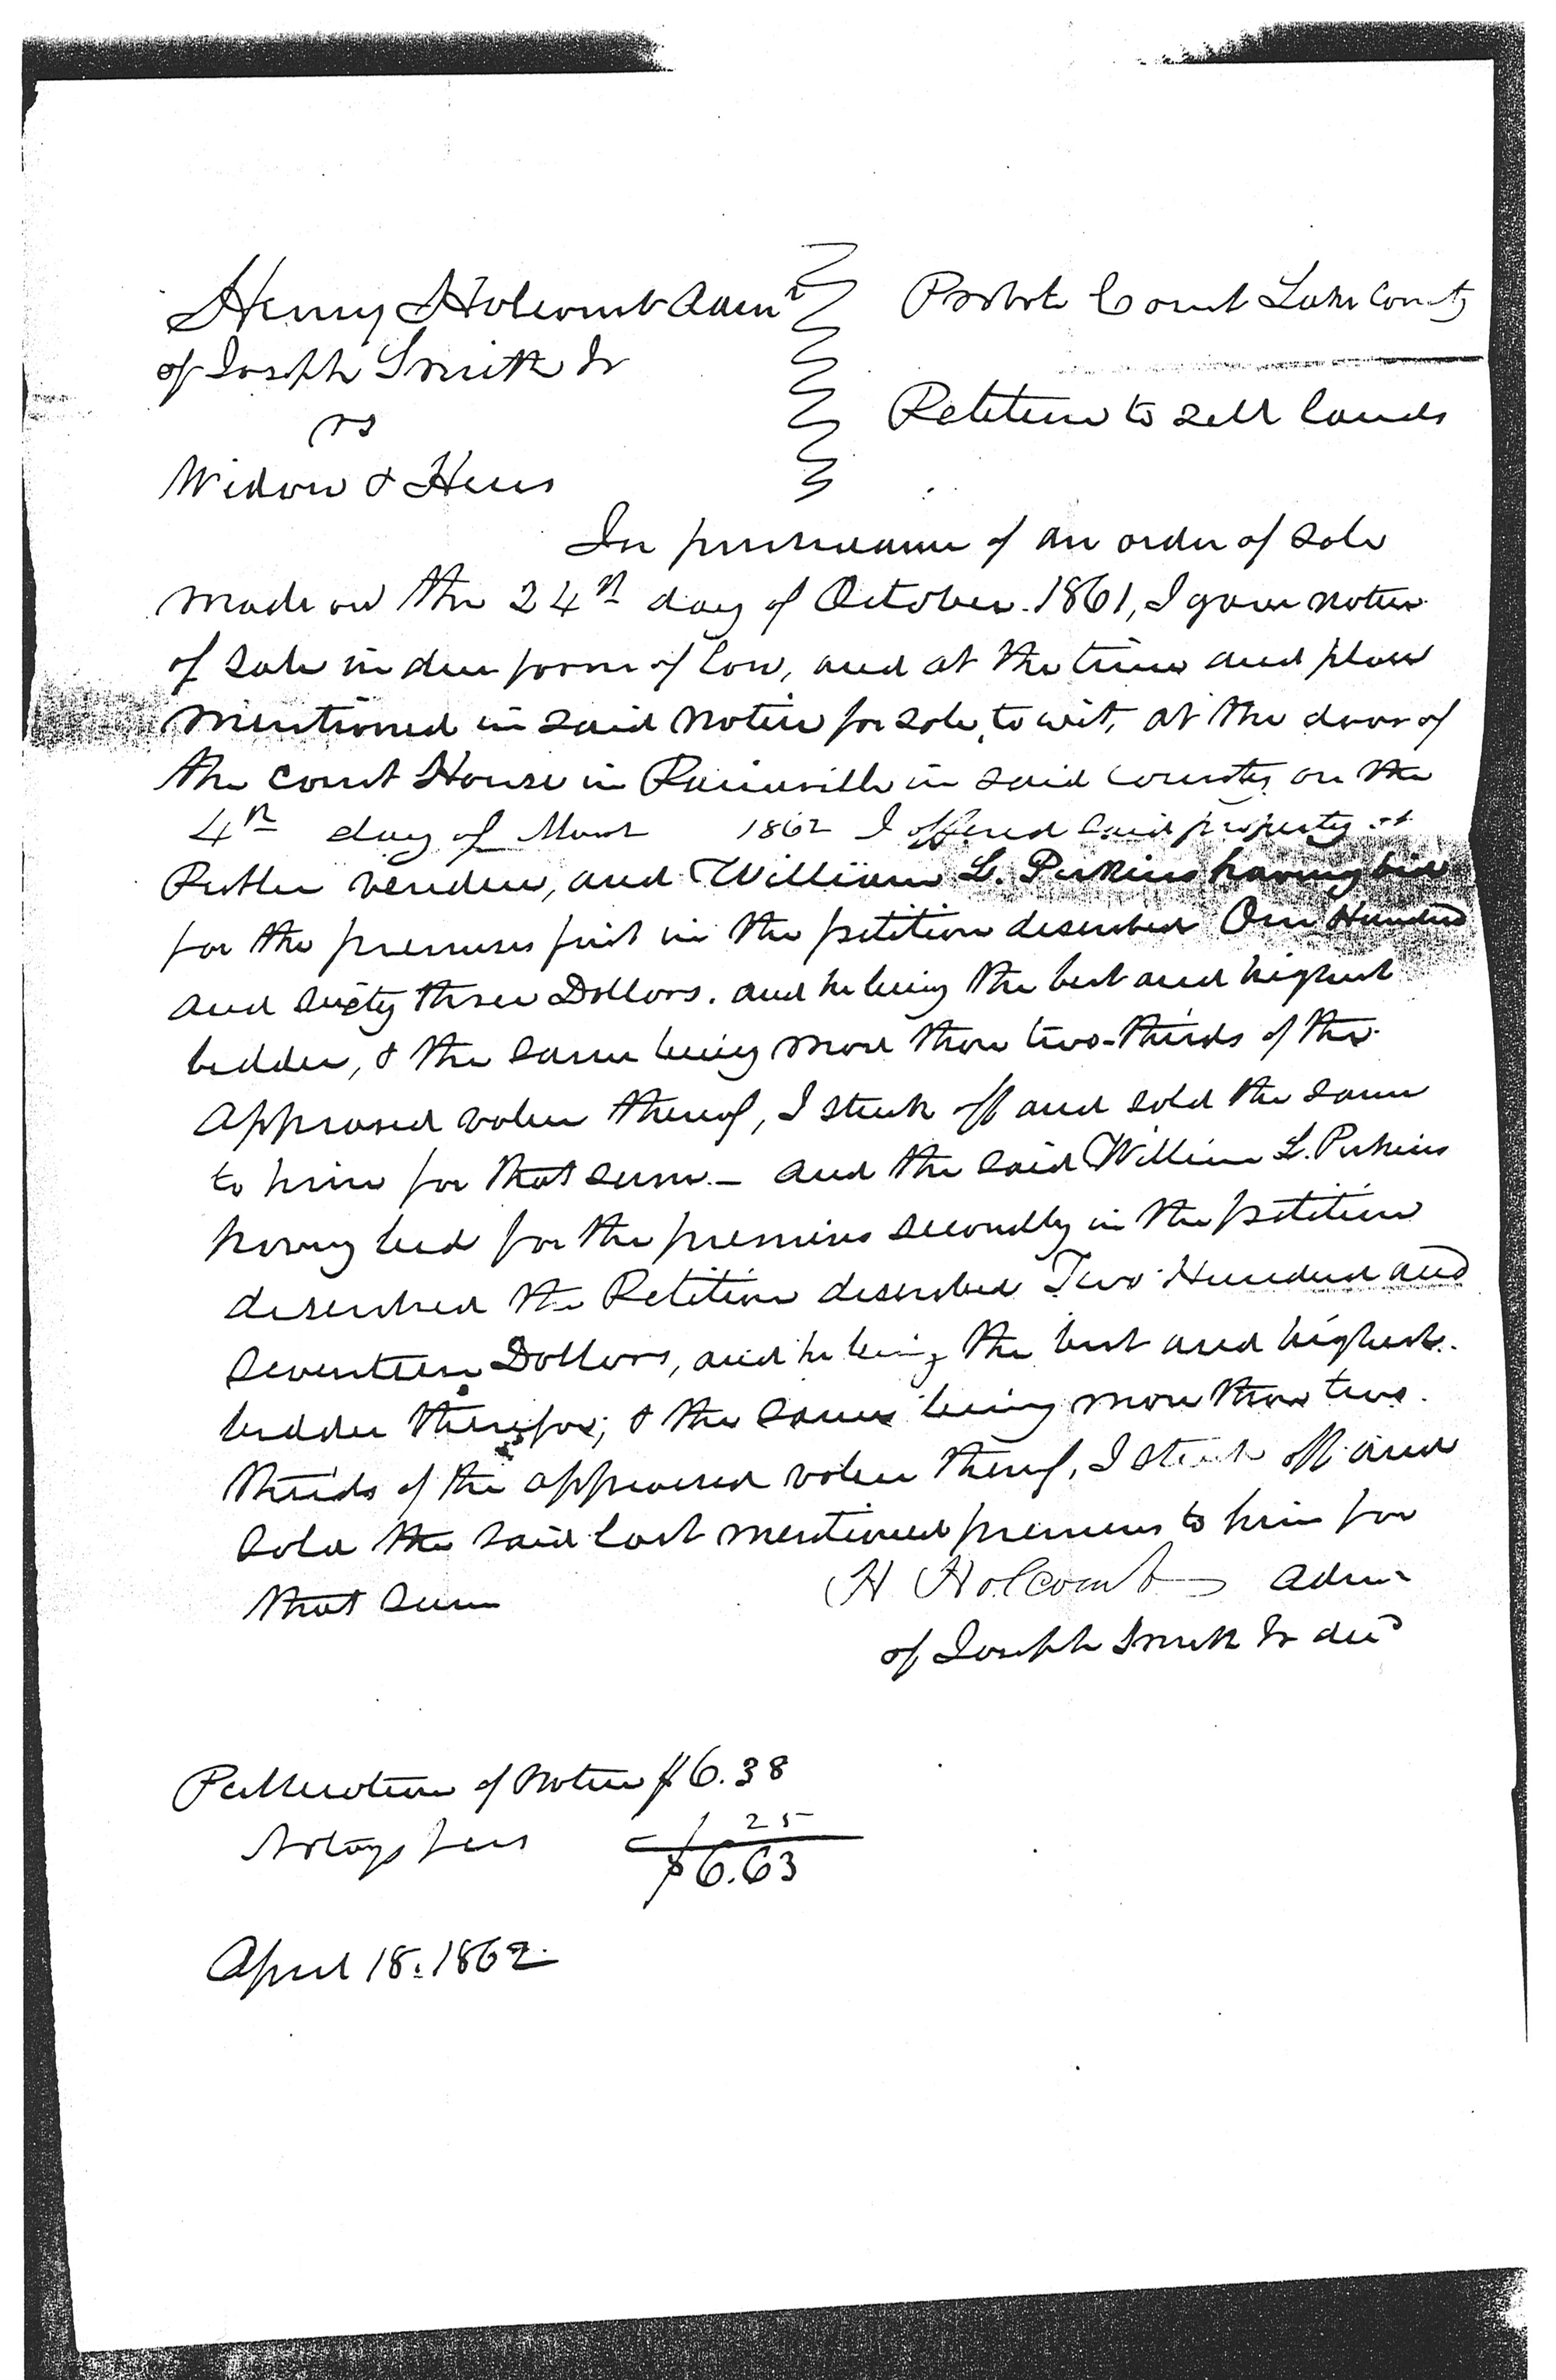 Henry Holcomb Admr
of Joseph Smith Jr
vs
Widow & Heirs
Probate Court Lake County
Petition to sell lands
In pursuance of an order of sale
made on the 24th day of October. 1861, I gave notice
of sale in due form of law, and at the time and place
mentioned in said notice for sale, to wit, at the door of
the court House in Painesville in said county on the
4th day of March 1862 I offered said property at
Public vendue, and William L. Perkins having bid
for the premises first in the petition described One Hundred
and sixty three Dollars. and he being the best and highest
bidder, & the same being more than two-thirds of the
appraised value thereof, I struck off and sold the same
to him for that sum. – and the said William L. Perkins
having bid for the premises secondly in the petition
described the Petition described Two Hundred and
seventeen Dollars, and he being the best and highest
bidder therefor; & the same being more than two
thirds of the appraised value thereof, I struck off and
sold the said last mentioned premises to him for
that sum
H Holcomb Admr
of Joseph Smith Jr decd
Publication of Notice $6.38
Notarys fees 25
$6.63
April 18. 1862.